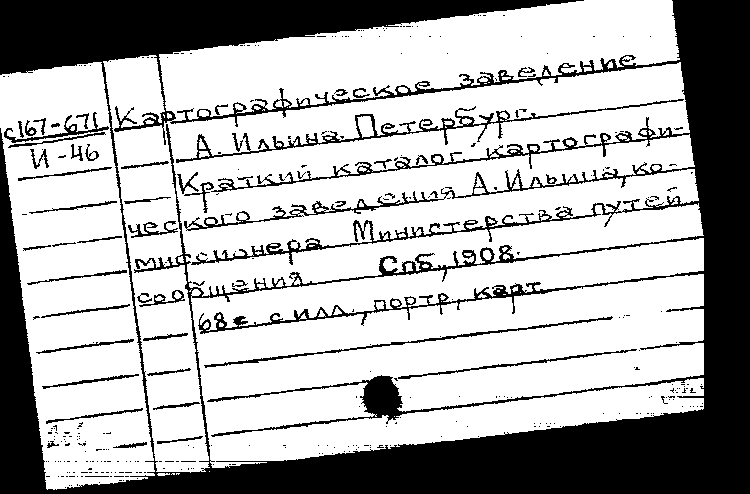 с167-671
И-46
Картографическое заведение
А. Ильина. Петербург.
Краткий каталог картографи-
ческого заведения А. Ильина, ко-
миссионера Министерства путей
сообщения. Спб., 1908.
68 с. с илл., портр., карт.